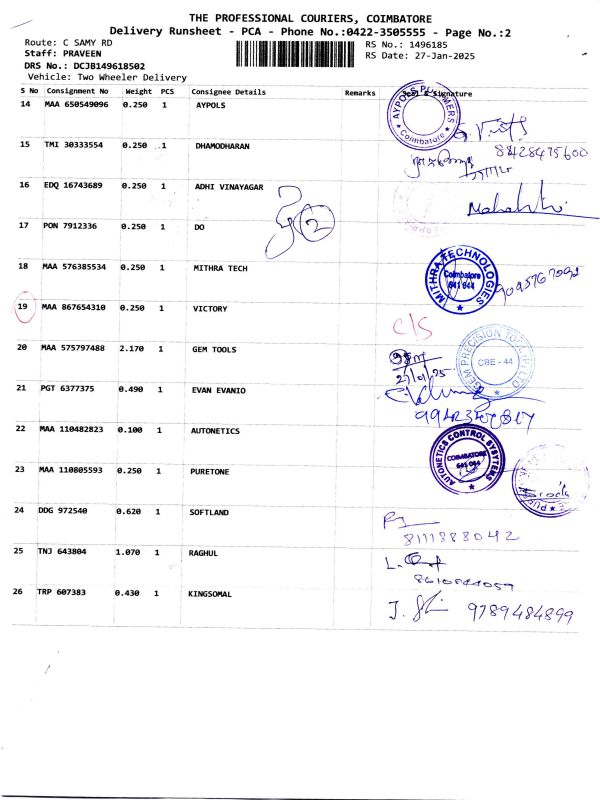 THE PROFESSIONAL COURIERS, COIMBATORE
Delivery Runsheet - PCA - Phone No.:0422-3505555 - Page No.:2
Route: C SAMY RD
RS No.: 1496185
Staff: PRAVEEN
RS Date: 27-Jan-2025
DRS No.: DCJB149618502
Vehicle: Two Wheeler Delivery
S No Consignment No Weight PCS Consignee Details Remarks Seal & Signature
14 MAA 650549096 0.250 1 AYPOLS
AYPOLS Coimbatore
15 TMI 30333554 0.250 1 DHAMODHARAN
8428475600
16 EDQ 16743689 0.250 1 ADHI VINAYAGAR
17 PON 7912336 0.250 1 DO
2
18 MAA 576385534 0.250 1 MITHRA TECH
MITHRA TECHNOLOGIES Coimbatore 641 044
19 MAA 867654310 0.250 1 VICTORY
C/S
20 MAA 575797488 2.170 1 GEM TOOLS
GEM PRECISION TOOL (P) LTD CBE - 44
21 PGT 6377375 0.490 1 EVAN EVANIO
22 MAA 110482823 0.100 1 AUTONETICS
AUTONETICS CONTROL SYSYTEMS COIMBATORE 641 044
23 MAA 110805593 0.250 1 PURETONE
24 DDG 972540 0.620 1 SOFTLAND
8111888042
25 TNJ 643804 1.070 1 RAGHUL
26 TRP 607383 0.430 1 KINGSOMAL
9789484899